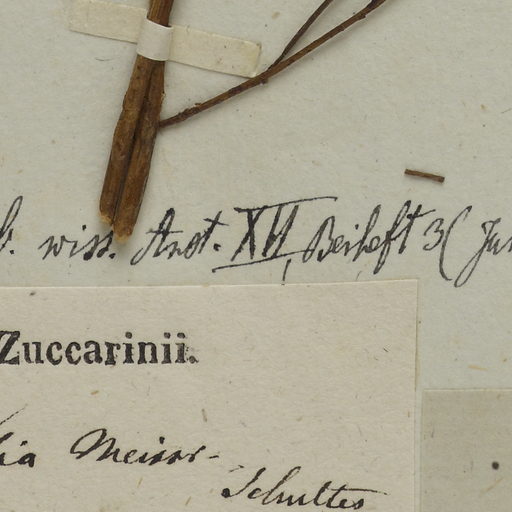 b. wiss. Anst. XVI, Beiheft 3 (Jun
Zuccarinii.
lia Meissr.
Schultes